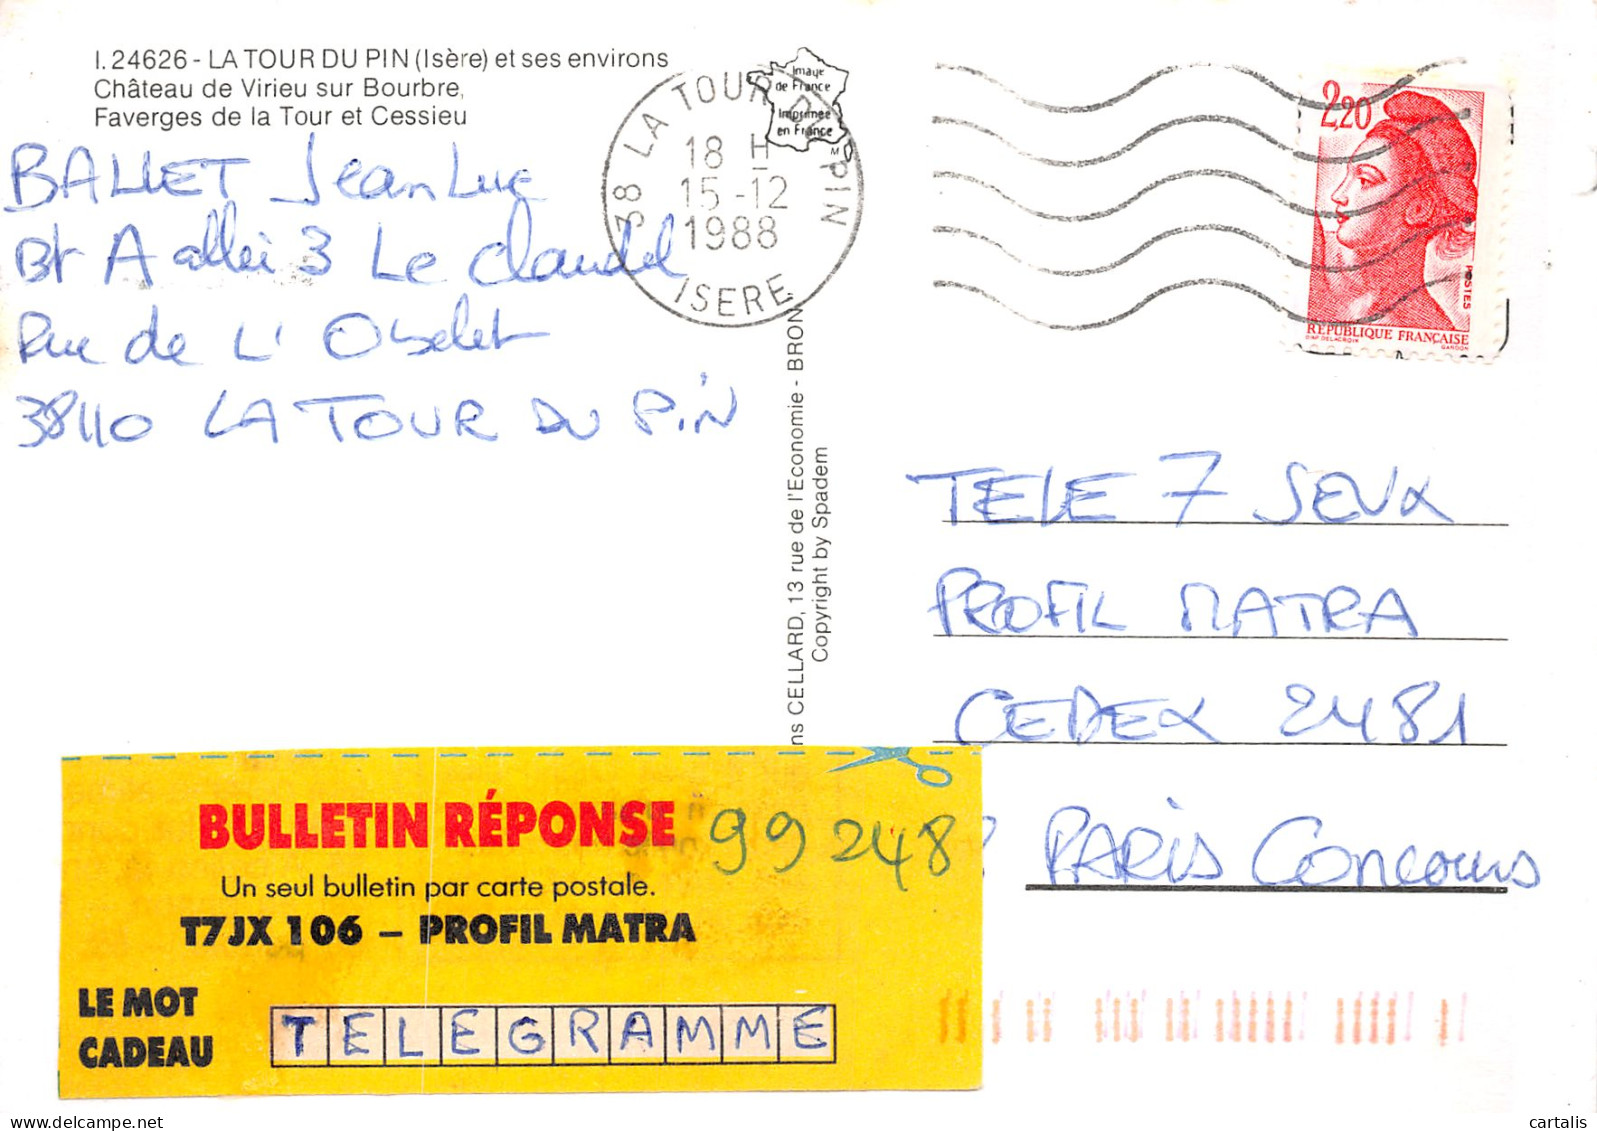 I. 24626 - LA TOUR DU PIN (Isère) et ses environs
Château de Virieu sur Bourbre,
Faverges de la Tour et Cessieu
BALLET Jean Luc
Bt A allée 3 Le Claudel
Rue de L'
38110 LA TOUR DU PIN
Image
de France
Imprimée
en France
38 LA TOUR DU PIN
18 H
15-12
1988
ISERE
2,20
POSTES
RÉPUBLIQUE FRANÇAISE
D'AP. DELACROIX GANDON
ns CELLARD, 13 rue de l'Economie - BRON
Copyright by Spadem
TELE 7 JEUX
PROFIL MATRA
CEDEX 2481
PARIS Concours
BULLETIN RÉPONSE 99 248
Un seul bulletin par carte postale.
T7JX 106 – PROFIL MATRA
LE MOT
CADEAU
TELEGRAMME
cartalis